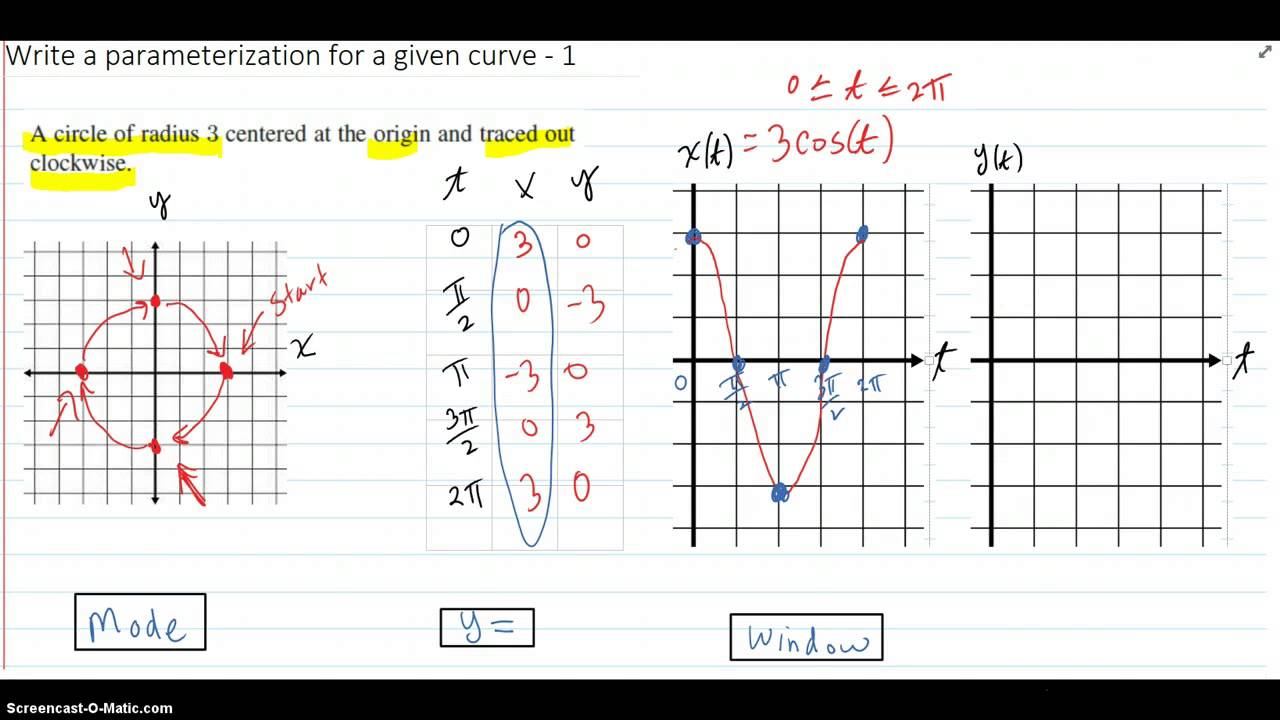 Write a parameterization for a given curve - 1
A circle of radius 3 centered at the origin and traced out
clockwise.
0 ≤ t ≤ 2π
x(t) = 3cos(t)
y(t)
y
x
start
t x y
0 3 0
π/2 0 -3
π -3 0
3π/2 0 3
2π 3 0
0 π/2 π 3π/2 2π
t
t
Mode
y =
Window
Screencast-O-Matic.com